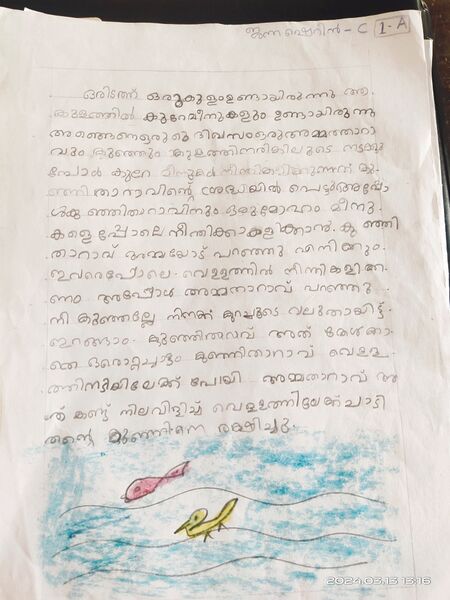 ജന്ന ഷെറിൻ - C 1-A
ഒരിടത്ത് ഒരു കുളം ഉണ്ടായിരുന്നു ആ
കുളത്തിൽ കുറേ മീനുകളും ഉണ്ടായിരുന്നു
അങ്ങനെ ഒരു ദിവസം ഒരു അമ്മത്താറാ
വും കുഞ്ഞും കുളത്തിനരികിലൂടെ നടക്കു
മ്പോൾ കുറേ മീനുകൾ നീന്തിക്കളിക്കുന്നത് കു
ഞ്ഞി താറാവിന്റെ ശ്രദ്ധയിൽ പെട്ടു അപ്പോ
ൾ കുഞ്ഞി താറാവിനും ഒരു മോഹം മീനു
കളെ പ്പോലെ നീന്തിക്കാകളിക്കാൻ. കുഞ്ഞി
താറാവ് അമ്മയോട് പറഞ്ഞു എനിക്കും.
ഇവരെപോലെ. വെള്ളത്തിൽ നീന്തികളിക്ക
ണം അപ്പോൾ അമ്മതാറാവ് പറഞ്ഞു
നീ കുഞ്ഞല്ലേ നിനക്ക് കുറച്ചുടെ വലുതായിട്ട്
ഇറങ്ങാം. കുഞ്ഞിതാറാവ് അത് കേൾക്കാ
തെ ഒരൊറ്റച്ചാട്ടം കുഞ്ഞിതാറാവ് വെള്ള
ത്തിനടിയിലേക്ക് പോയി അമ്മതാറാവ് അ
ത് കണ്ട് നിലവിളിച്ച് വെള്ളത്തിലേക്ക് ചാടി
തന്റെ കുഞ്ഞിനെ രക്ഷിച്ചു.
2024.03.13 13:16